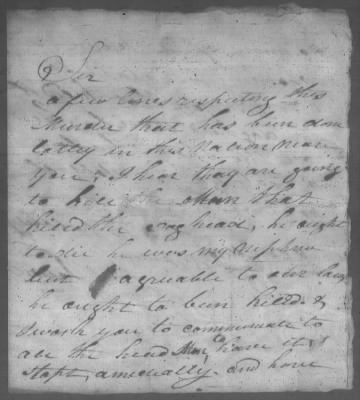 Sir
a few lines respecting this
Murder that has bin don
latly in this Nation near
you, I hear they are going
to kill the Man that
killd the head, he ought
to die he was my nephew
but agreable to our law
he ought to bin killd &
I wish you to communicate to
all the head Men to have it
stopt, amediatly. and have